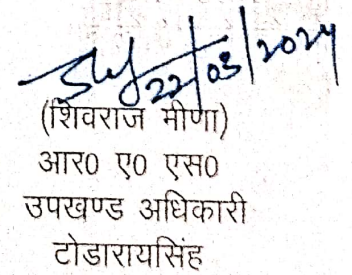 22/03/2024
(शिवराज मीणा)
आर0 ए0 एस0
उपखण्ड अधिकारी
टोडारायसिंह